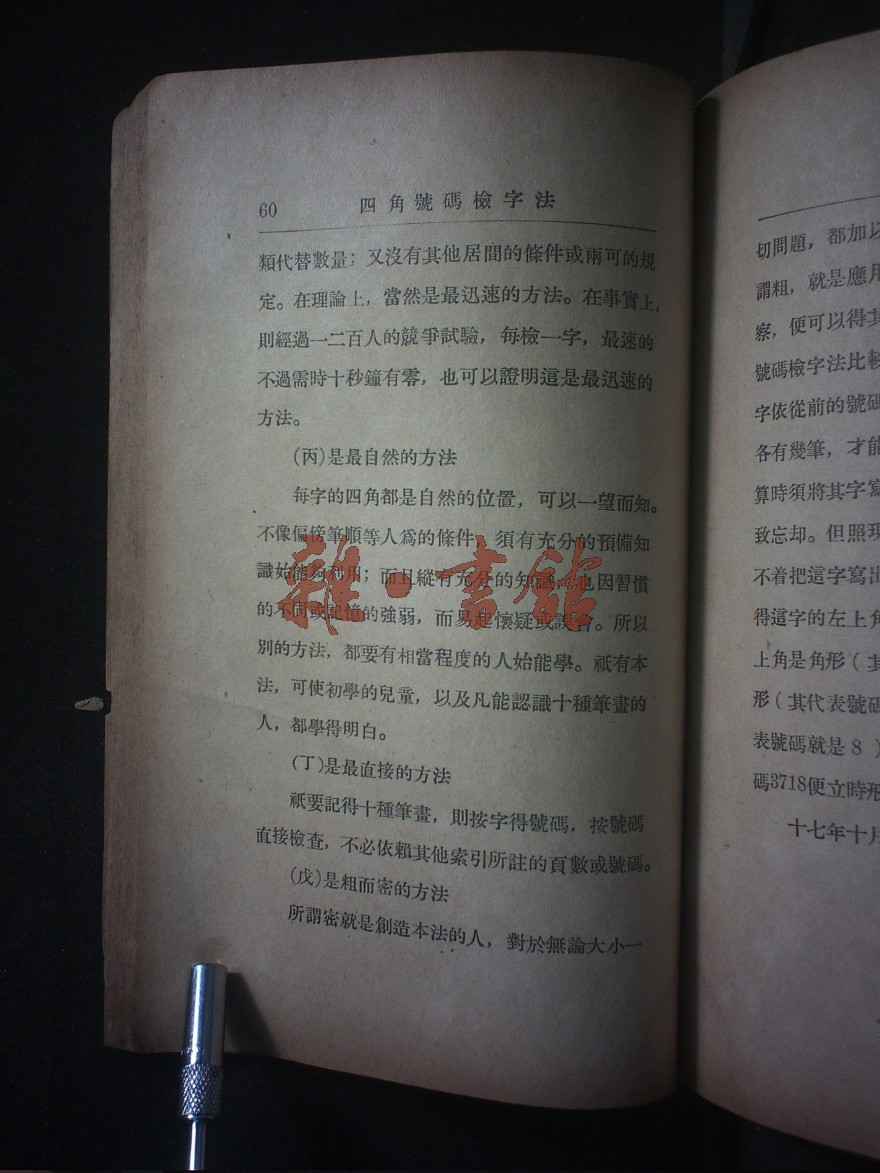 60
四角號碼檢字法
類代替數量；又沒有其他居間的條件或兩可的規
定。在理論上，當然是最迅速的方法。在事實上，
則經過一二百人的競爭試驗，每檢一字，最速的
不過需時十秒鐘有零，也可以證明這是最迅速的
方法。
(丙)是最自然的方法
每字的四角都是自然的位置，可以一望而知。
不像偏榜筆順等人爲的條件，須有充分的預備知
識始能夠利用；而且縱有充分的知識，也因習慣
的不同或記憶的強弱，而易起懷疑或誤會。所以
別的方法，都要有相當程度的人始能學。祇有本
法，可使初學的兒童，以及凡能認識十種筆畫的
人，都學得明白。
(丁)是最直接的方法
祇要記得十種筆畫，則按字得號碼，按號碼
直接檢查，不必依賴其他索引所註的頁數或號碼。
(戊)是粗而密的方法
所謂密就是創造本法的人，對於無論大小一
雜·書館
切問題，都加以
謂粗，就是應用
察，便可以得其
號碼檢字法比較
字依從前的號碼
各有幾筆，才能
算時須將其字寫
致忘却。但照現
不着把這字寫出
得這字的左上角
上角是角形（其
形（其代表號碼
表號碼就是8）
碼3718便立時形
十七年十月